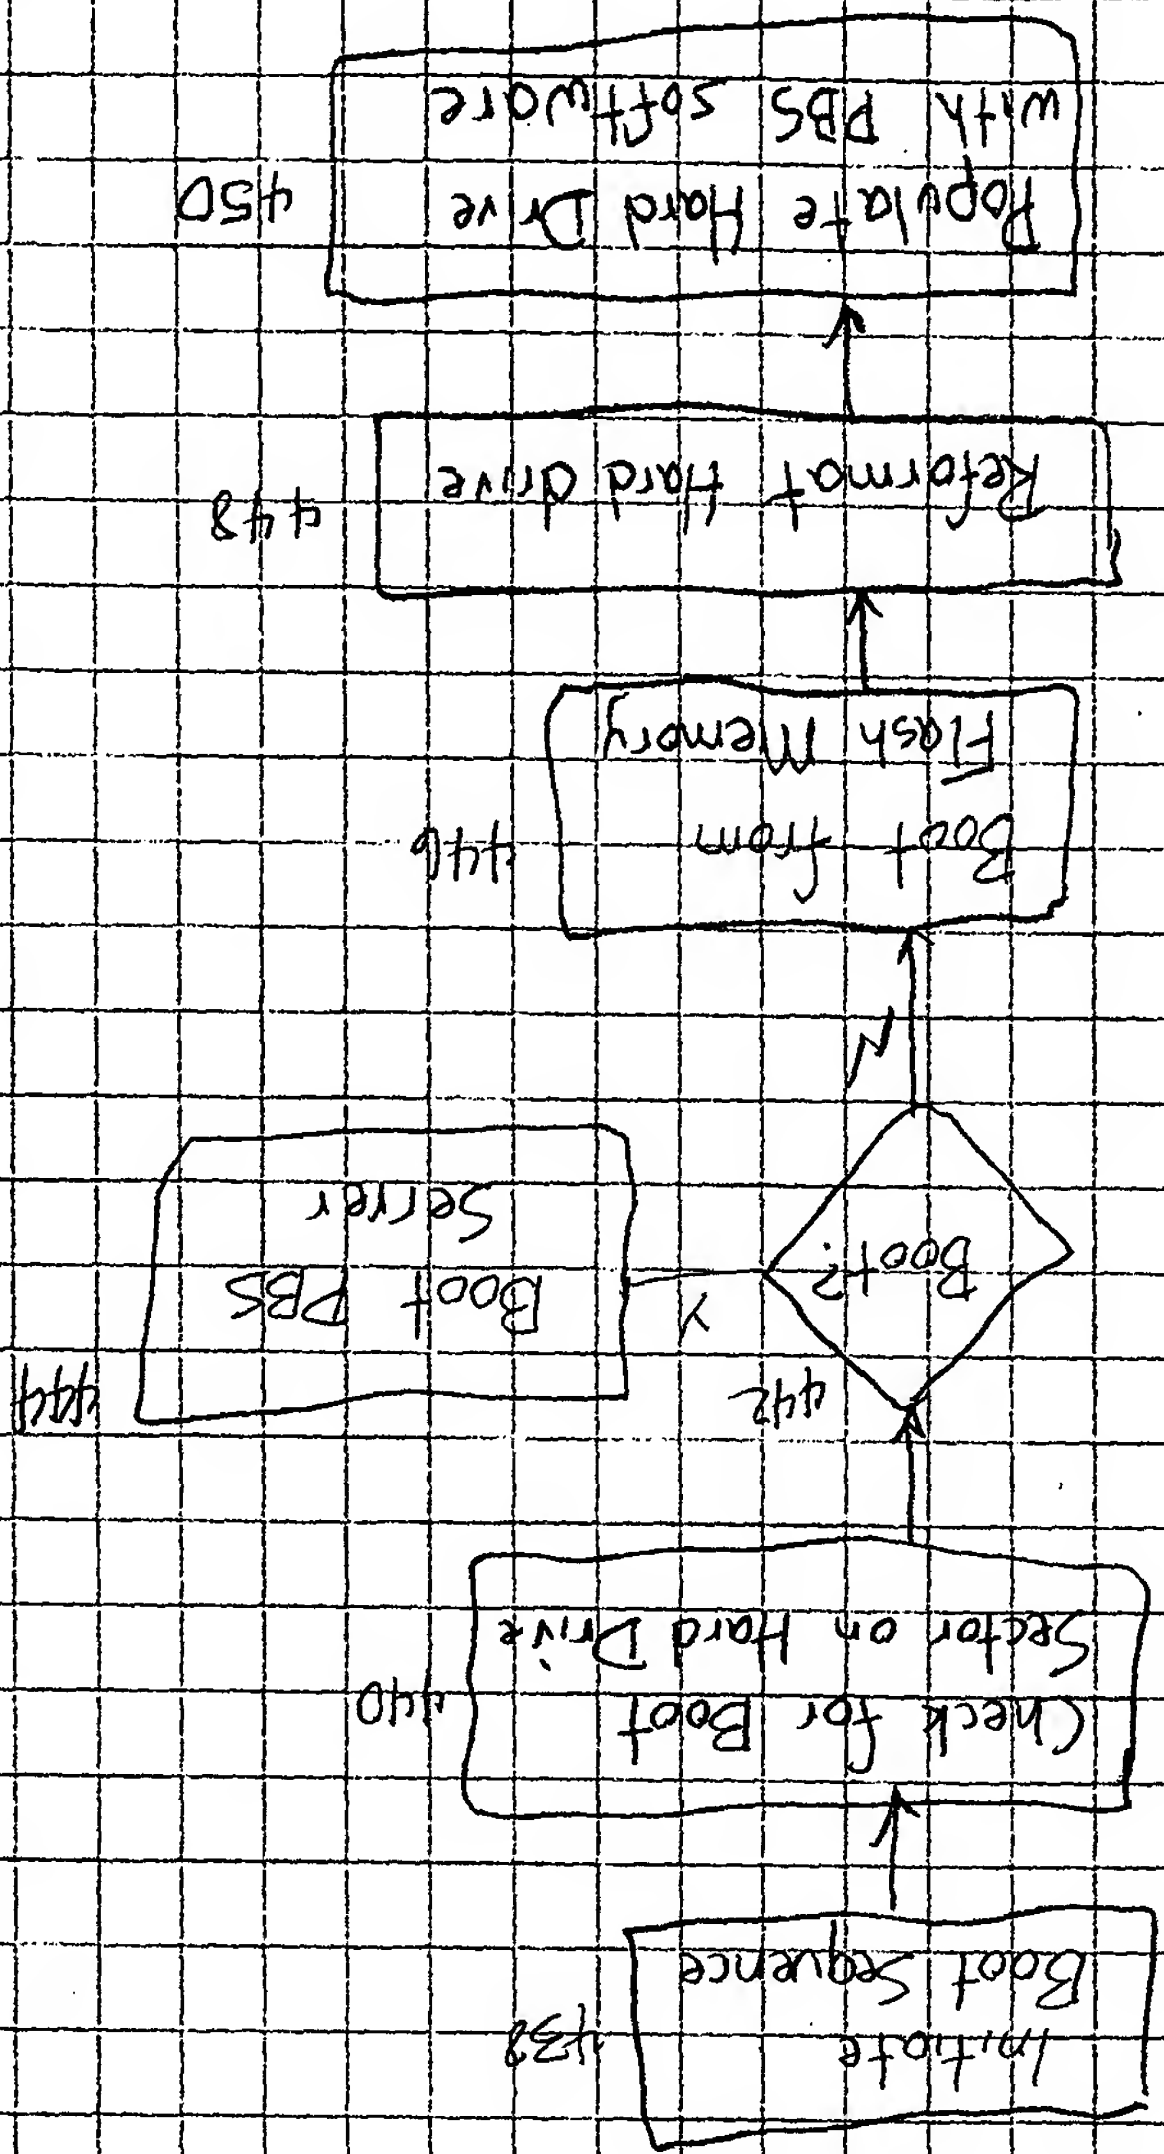 Initiate
Boot Sequence
438
Check for Boot
Sector on Hard Drive
440
442
Boot?
Y
444
Boot PBS
Server
N
Boot from
Flash Memory
446
Reformat Hard drive
448
Populate Hard Drive
with PBS software
450